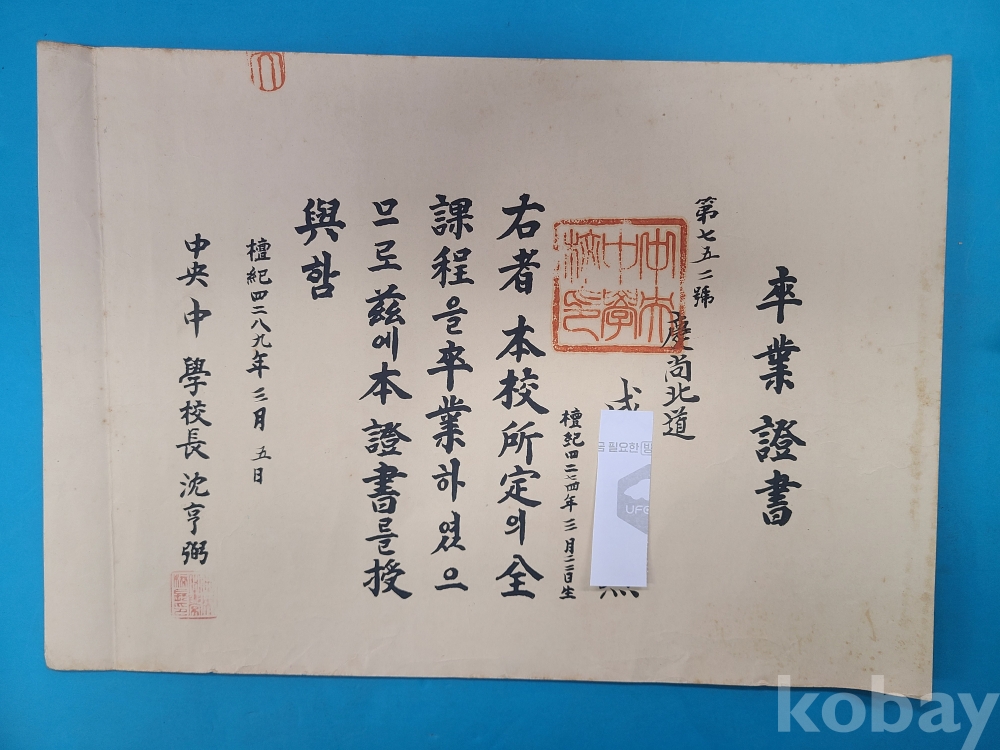 卒業證書
第七五二號
慶尙北道
成
檀紀四二七四年三月二二日生
右者本校所定의全
課程을卒業하였으
므로玆에本證書를授
與함
檀紀四二八九年三月五日
中央中學校長沈亨弼
급 필요한
UFO
kobay